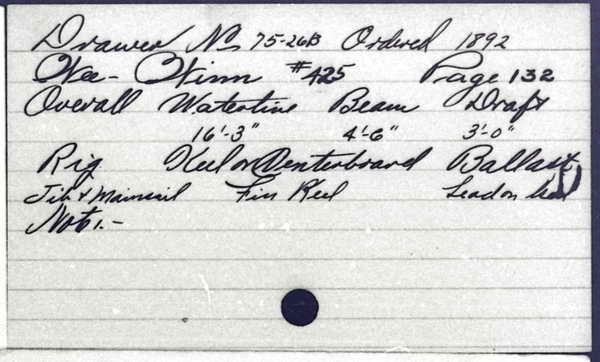 Drawer No 75-26B Ordered 1892
Wee-Winn #425 Page 132
Overall Waterline Beam Draft
16'-3" 4'-6" 3'-0"
Rig Keel or Centerboard Ballast
Jib & Mainsail Fin Keel Lead on keel
Note.-